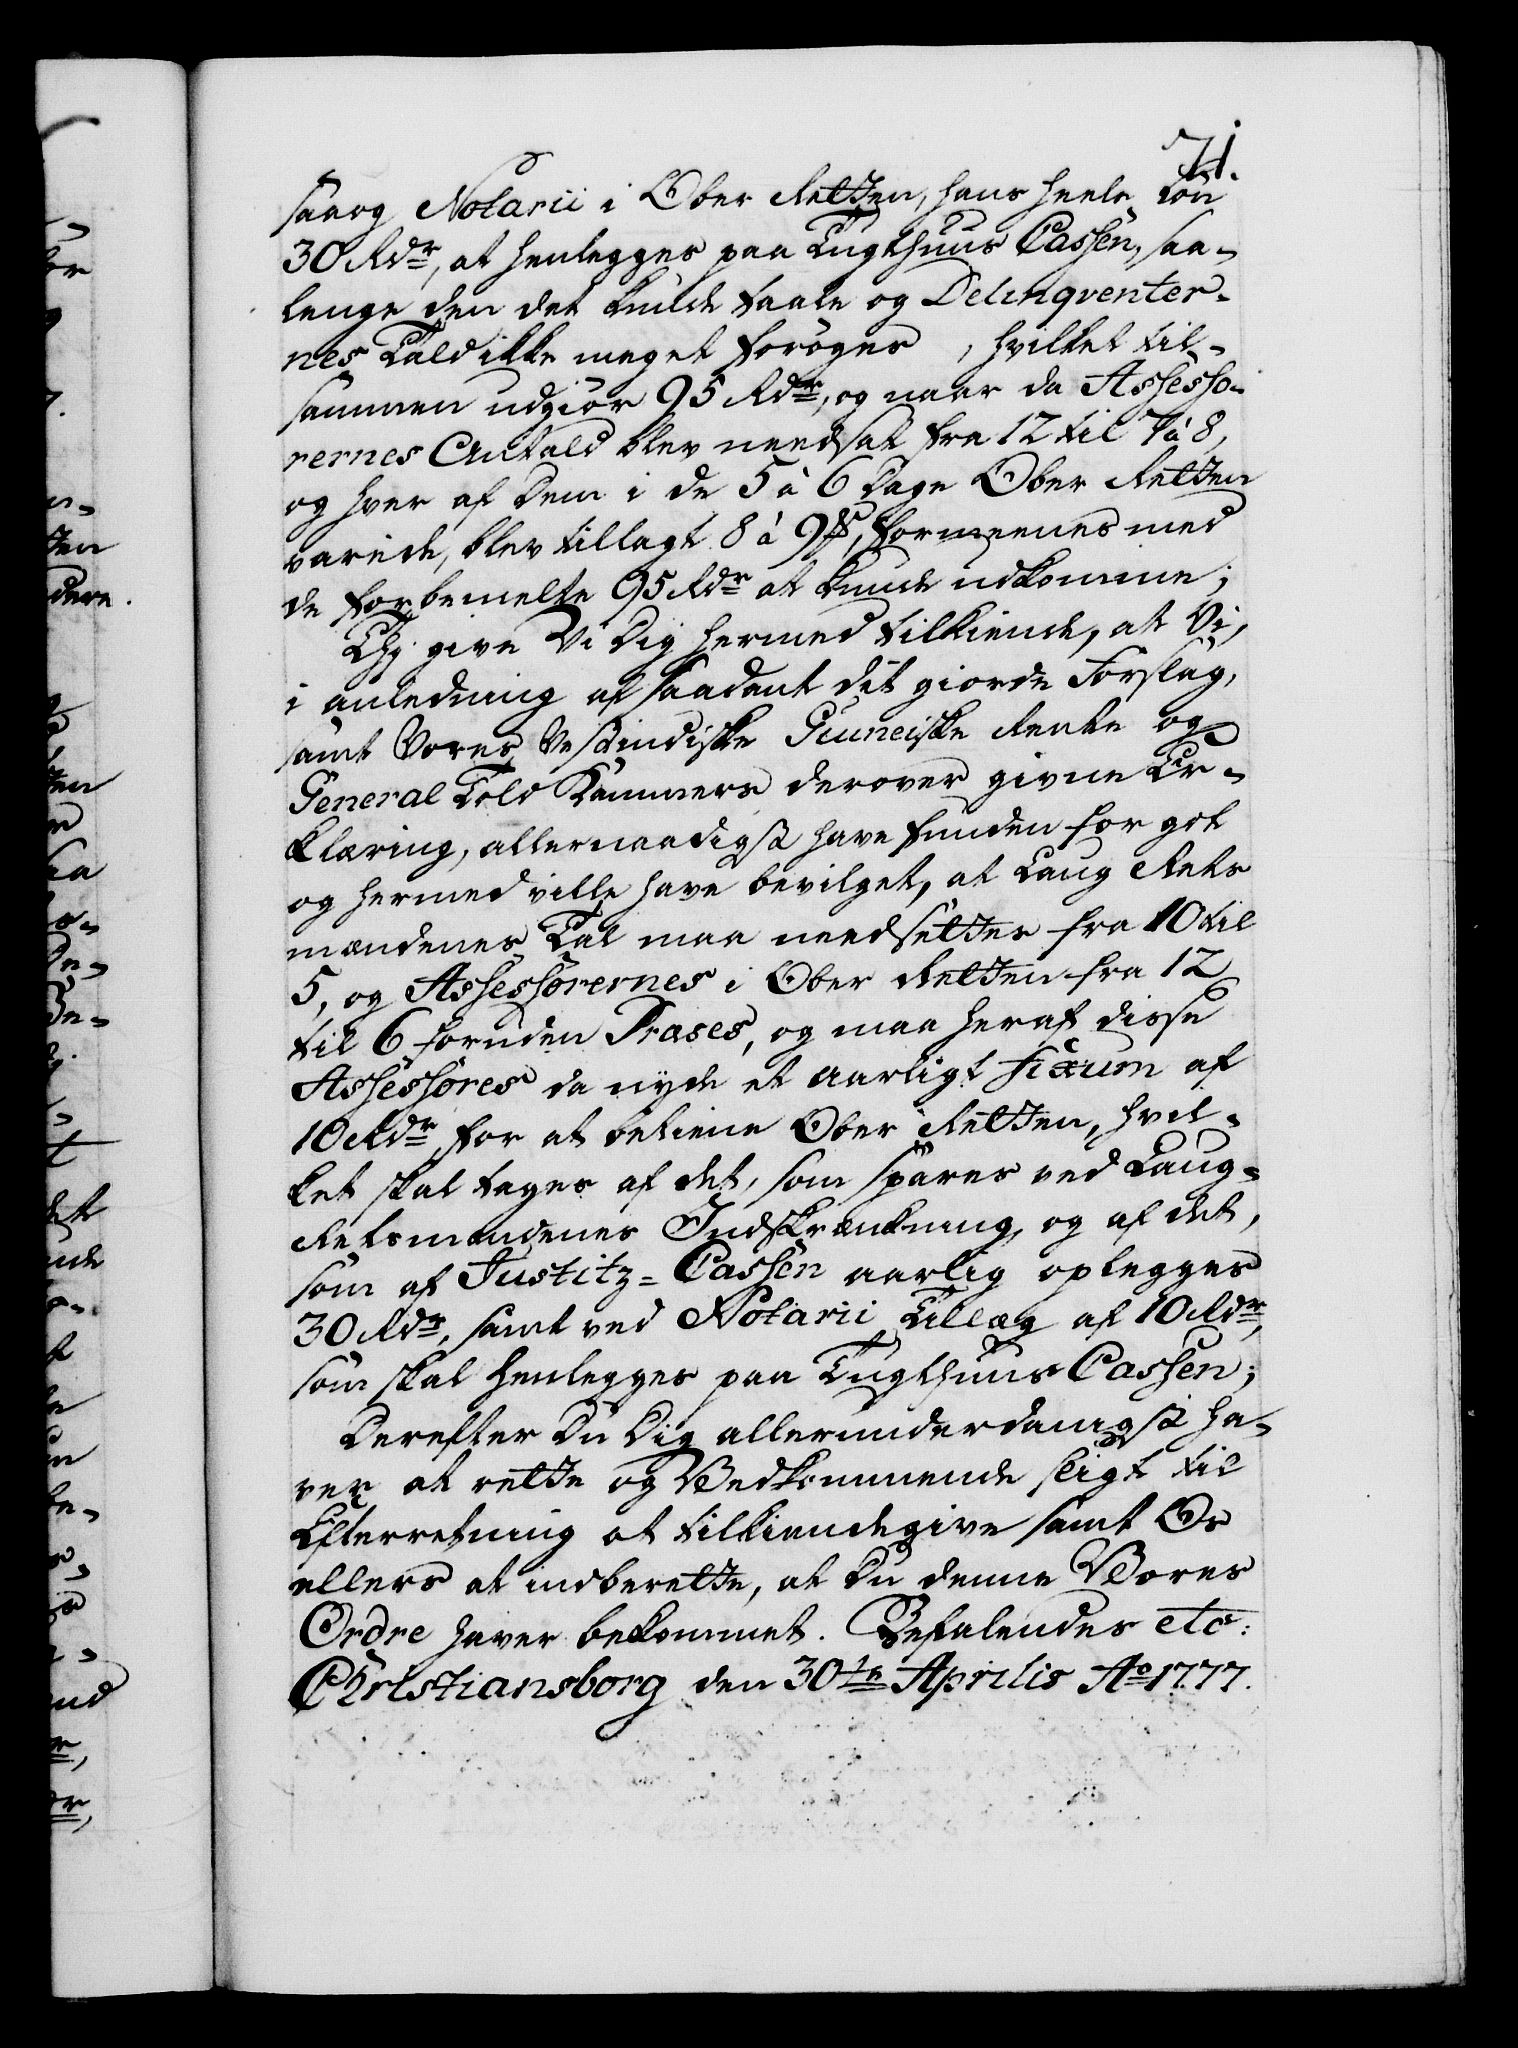 71.
saaog Notarii i Ober Retten, hans heele Løn
30 Rdr, at henlegges paa Tugthuus Cassen, saa-
lenge den det kunde taale og Delinqventer-
nes Tald ikke meget forøges, hvilket til-
sammen udgiør 95 Rdr, og naar da Assesso-
rernes Antald blev needsat fra 12 til 7 à 8,
og hver af dem i de 5 à 6 Dage Ober Retten
varede, blev tillagt 8 à 9 ß, formeenes med
de forbemelte 95 Rdr at kunde udkomme;
Thi give Vi Dig hermed tilkiende, at Vi,
i anledning af saadant dit giorde Forslag,
samt Vores Vestindiske Guineiske Rente og
General Told Kammers derover givne Er-
klæring, allernaadigst have funden for got
og hermed ville have bevilget, at Laug Rets
mændenes Tal maa needsættes fra 10 til
5, og Assessorernes i Ober Retten fra 12
til 6 foruden Præses, og maa heraf disse
Assessores da nyde et aarligt Fixum af
10 Rdr for at betiene Ober Retten, hvil-
ket skal tages af det, som spares ved Laug-
Retsmændenes Indskrænkning, og af det,
som af Justitz-Cassen aarlig oplegges
30 Rdr, samt ved Notarii Tillæg af 10 Rdr,
som skal henlegges paa Tugthuus Cassen;
Derefter Du Dig allerunderdanigst ha-
ver at rette og Vedkommende sligt til
Efterretning at tilkiendegive samt Os
ellers at indberette, at Du denne Vores
Ordre haver bekommet. Befalendes etc:
Christiansborg den 30te Aprilis Ao 1777.